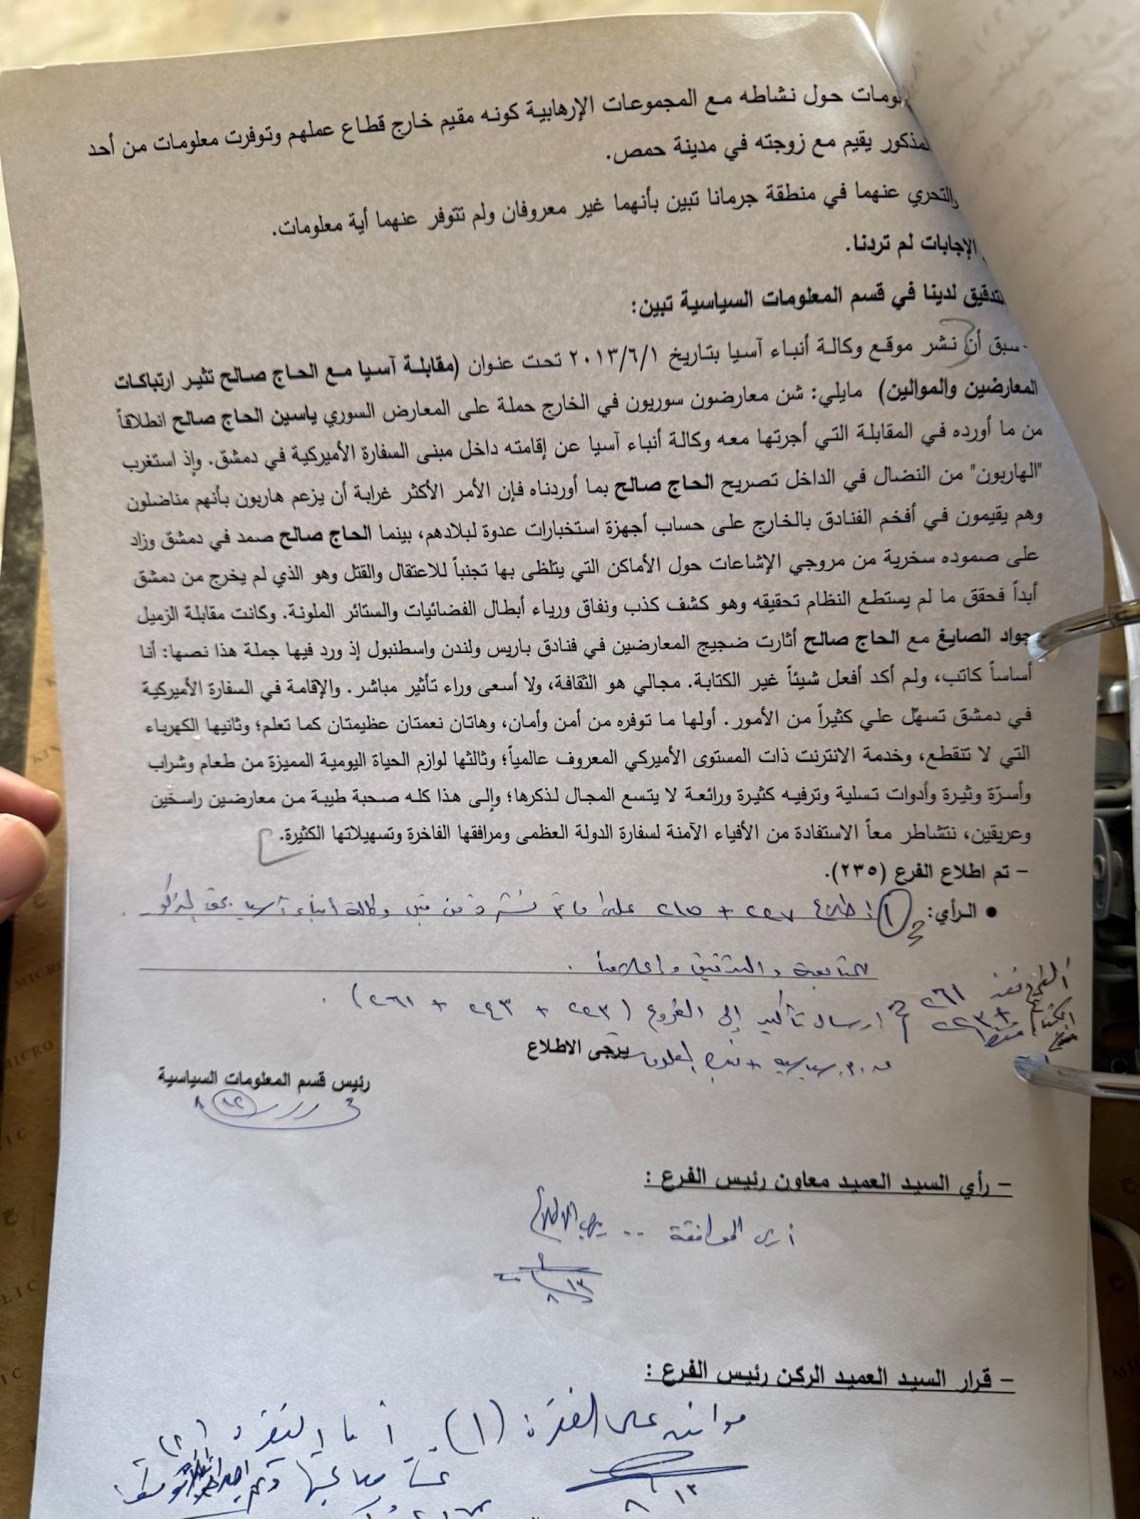 ومات حول نشاطه مع المجموعات الإرهابية كونه مقيم خارج قطاع عملهم وتوفرت معلومات من أحد
لمذكور يقيم مع زوجته في مدينة حمص.
والتحري عنهما في منطقة جرمانا تبين بأنهما غير معروفان ولم تتوفر عنهما أية معلومات.
الإجابات لم تردنا.
لتدقيق لدينا في قسم المعلومات السياسية تبين:
- سبق أن نشر موقع وكالة أنباء آسيا بتاريخ ٢٠١٣/٦/١ تحت عنوان (مقابلة آسيا مع الحاج صالح تثير ارتباكات
المعارضين والموالين) مايلي: شن معارضون سوريون في الخارج حملة على المعارض السوري ياسين الحاج صالح انطلاقاً
من ما أورده في المقابلة التي أجرتها معه وكالة أنباء آسيا عن إقامته داخل مبنى السفارة الأميركية في دمشق. وإذ استغرب
"الهاربون" من النضال في الداخل تصريح الحاج صالح بما أوردناه فإن الأمر الأكثر غرابة أن يزعم هاربون بأنهم مناضلون
وهم يقيمون في أفخم الفنادق بالخارج على حساب أجهزة استخبارات عدوة لبلادهم، بينما الحاج صالح صمد في دمشق وزاد
على صموده سخرية من مروجي الإشاعات حول الأماكن التي يتلظى بها تجنباً للاعتقال والقتل وهو الذي لم يخرج من دمشق
أبداً فحقق ما لم يستطع النظام تحقيقه وهو كشف كذب ونفاق ورياء أبطال الفضائيات والستائر الملونة. وكانت مقابلة الزميل
جواد الصايغ مع الحاج صالح أثارت ضجيج المعارضين في فنادق باريس ولندن واسطنبول إذ ورد فيها جملة هذا نصها: أنا
أساساً كاتب، ولم أكد أفعل شيئاً غير الكتابة. مجالي هو الثقافة، ولا أسعى وراء تأثير مباشر. والإقامة في السفارة الأميركية
في دمشق تسهّل علي كثيراً من الأمور. أولها ما توفره من أمن وأمان، وهاتان نعمتان عظيمتان كما تعلم؛ وثانيها الكهرباء
التي لا تنقطع، وخدمة الانترنت ذات المستوى الأميركي المعروف عالمياً؛ وثالثها لوازم الحياة اليومية المميزة من طعام وشراب
وأسرّة وثيرة وأدوات تسلية وترفيه كثيرة ورائعة لا يتسع المجال لذكرها؛ وإلى هذا كله صحبة طيبة من معارضين راسخين
وعريقين، نتشاطر معاً الاستفادة من الأفياء الآمنة لسفارة الدولة العظمى ومرافقها الفاخرة وتسهيلاتها الكثيرة.
- تم اطلاع الفرع (٢٣٥).
• الرأي: ١ اطلاع ٢٢٧ + ٢١٥ على ماتم نشره من قبل وكالة أنباء آسيا بحق المذكور
للمتابعة والتدقيق وإعلامنا.
٢ ارسال تأكيد إلى الفروع (٢٢٣ + ٢٤٣ + ٢٦١).
يرجى الاطلاع
رئيس قسم المعلومات السياسية
- رأي السيد العميد معاون رئيس الفرع :
أرى الموافقة .. يرجى الاطلاع
- قرار السيد العميد الركن رئيس الفرع :
موافق على الفقرة (١). أما الفقرة (٢)